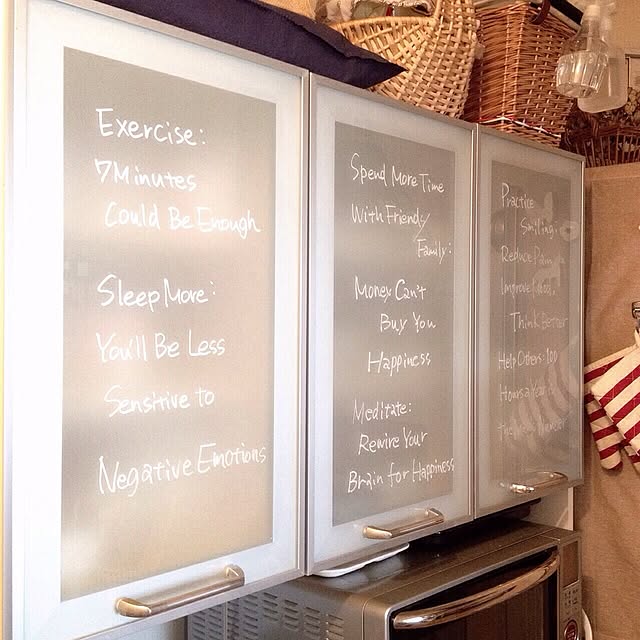 Exercise:
7 Minutes
Could Be Enough
Sleep More:
You'll Be Less
Sensitive to
Negative Emotions
Spend More Time
With Friends/
Family:
Money Can't
Buy You
Happiness
Meditate:
Rewire Your
Brain for Happiness
Practice
Smiling:
Reduce Pain
Improve
Think Better
Help Others: 100
Hours a Year